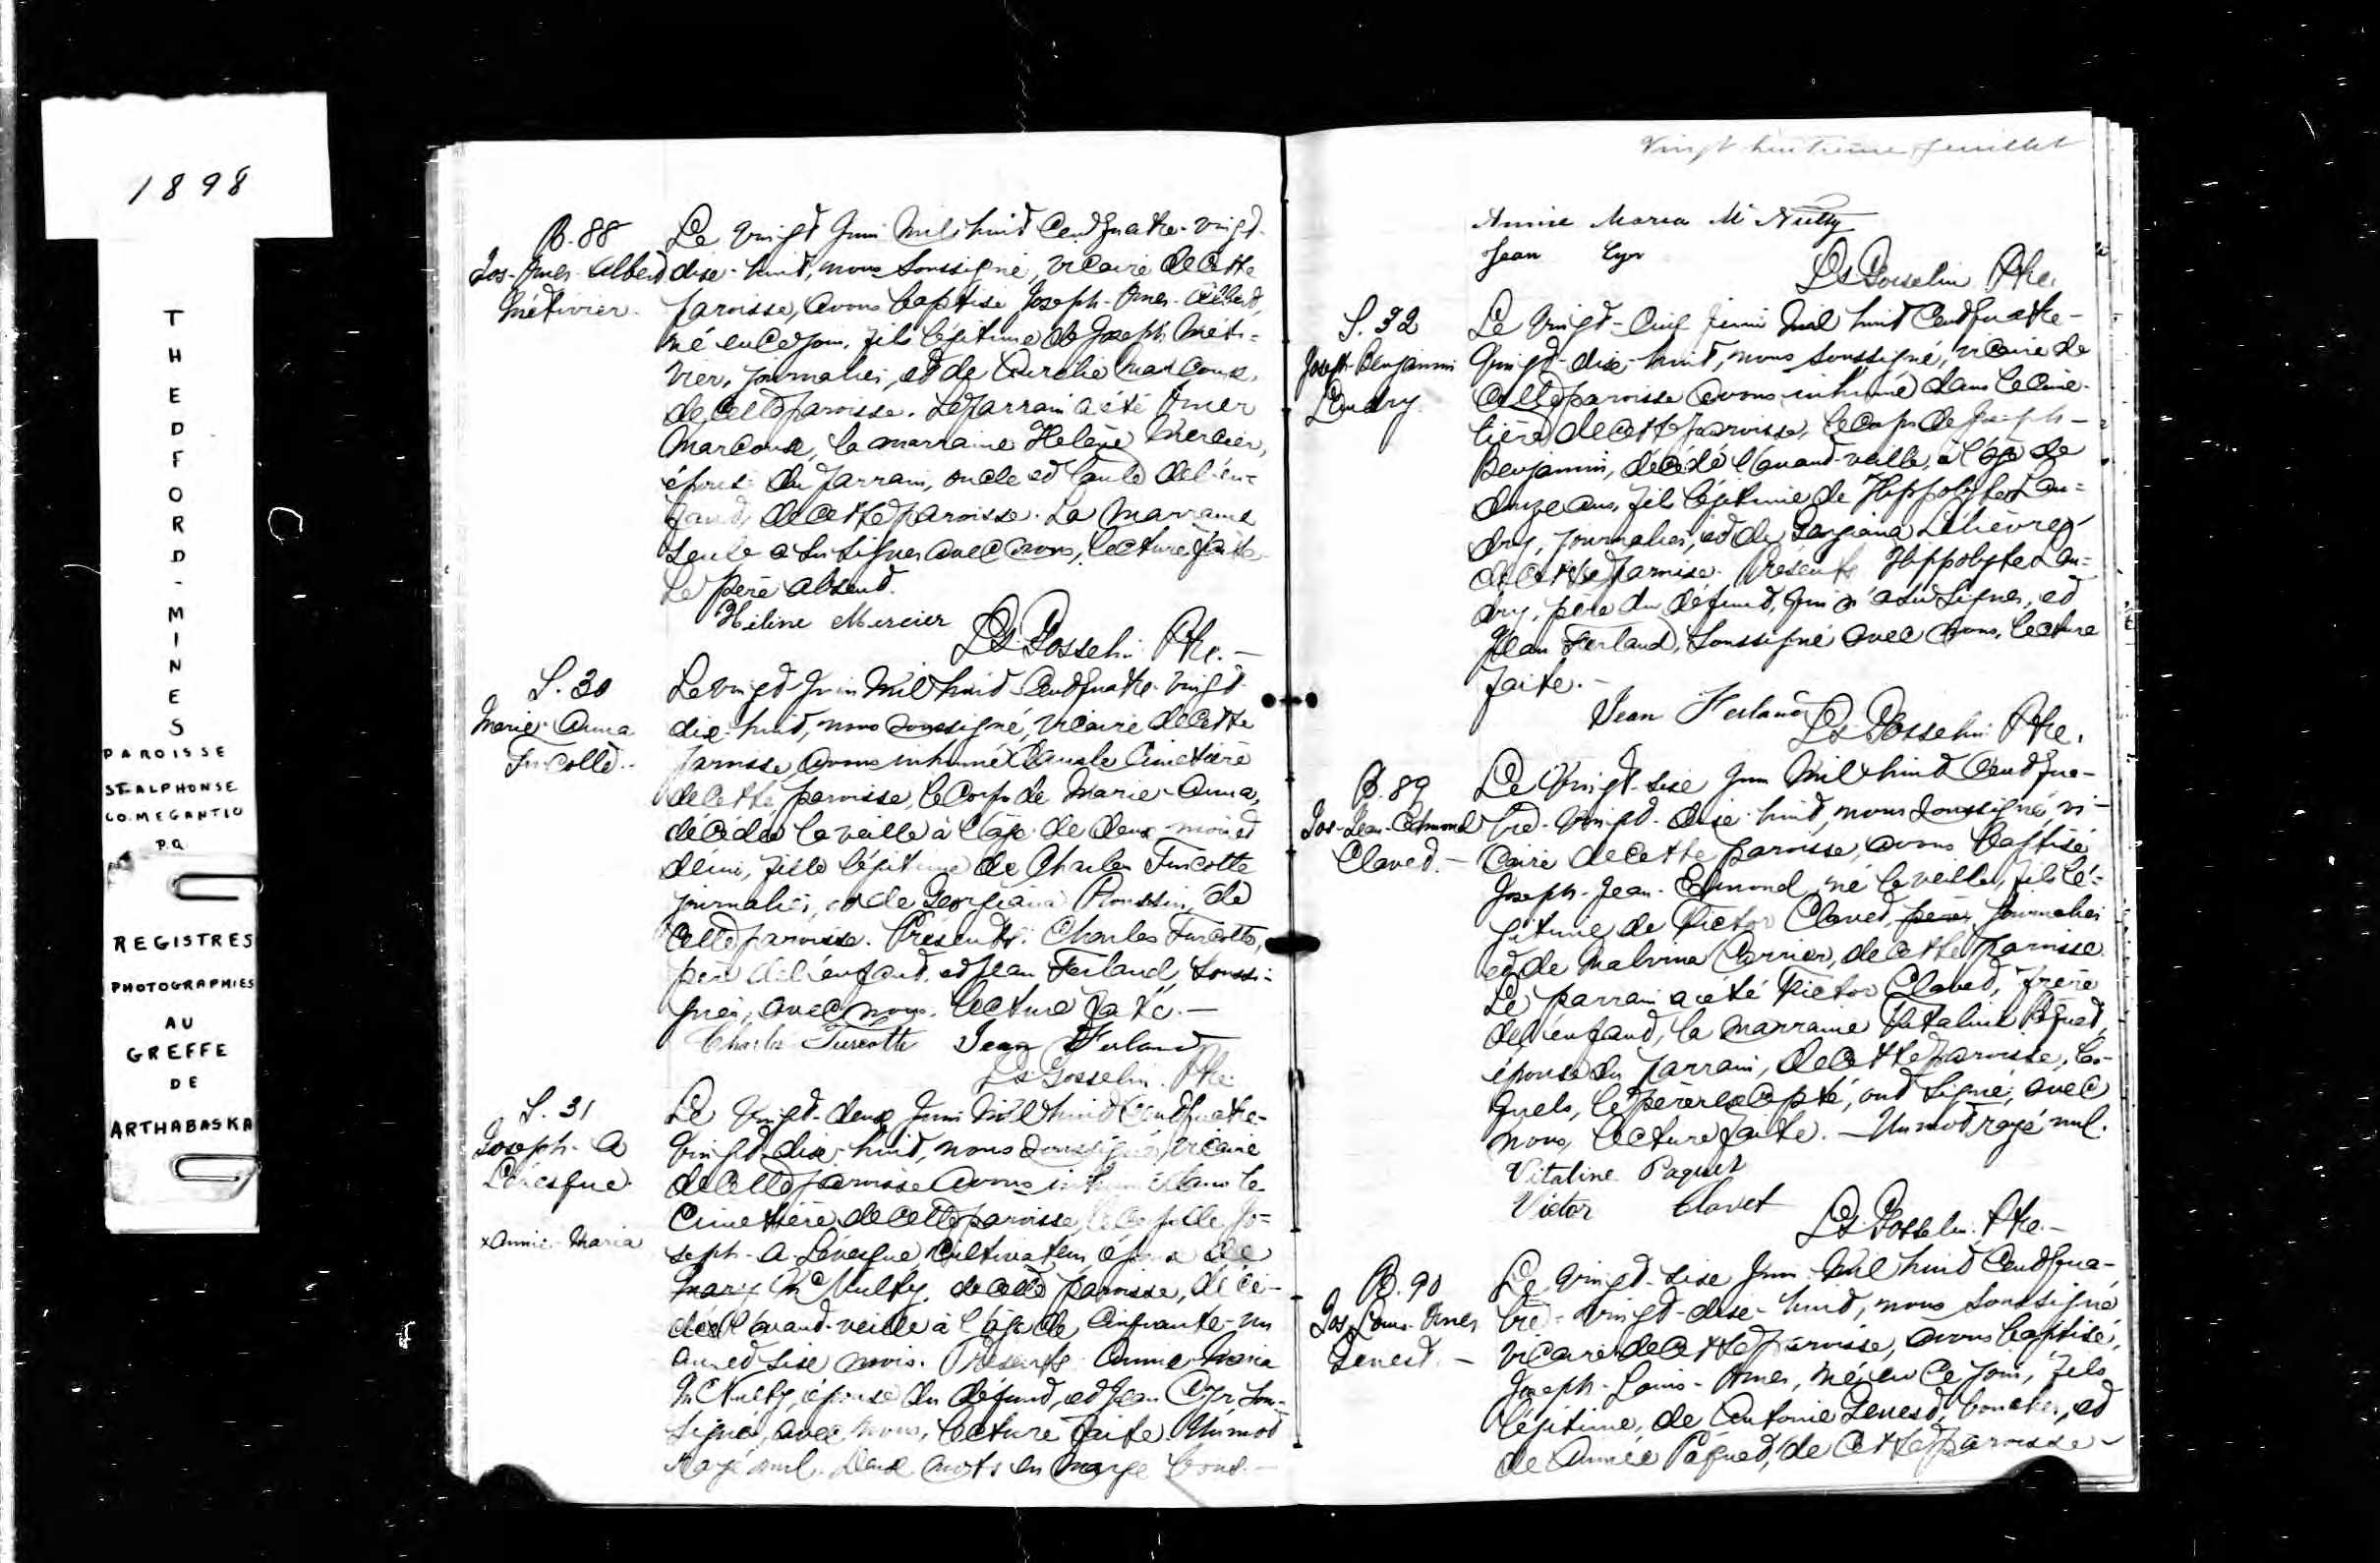 1898
THEDFORD-MINES
PAROISSE
ST-ALPHONSE
CO. MEGANTIC
P.Q.
REGISTRES
PHOTOGRAPHIES
AU
GREFFE
DE
ARTHABASKA
B. 88
Jos-Omer-Albert
Métivier.
Le vingt Juin Mil huit Cent quatre-vingt-
dix-huit, nous soussigné, vicaire de cette
paroisse, avons baptisé Joseph-Omer-Albert,
né en ce jour, fils légitime de Joseph Méti=
vier, journalier, et de Aurélie Marcoux,
de cette paroisse. Le parrain a été Omer
Marcoux, la marraine Helène Mercier,
épouse du parrain, oncle et tante de l'en=
fant, de cette paroisse. La marraine
seule a su signer avec nous, lecture faite.
Le père absent.
Hélène Mercier
Ls. Gosselin Ptre.-
S. 30
Marie-Anna
Turcotte.
Le vingt Juin Mil huit Cent quatre-vingt-
dix-huit, nous soussigné, vicaire de cette
paroisse, avons inhumé dans le Cimetière
de cette paroisse, le corps de Marie-Anna,
décédée la veille à l'âge de deux mois et
demi, fille légitime de Charles Turcotte
journalier, et de Georgiana Roussin, de
cette paroisse. Présents: Charles Turcotte,
père de l'enfant, et Jean Ferland, soussi=
gnés, avec nous. Lecture faite.-
Charles Turcotte Jean Ferland
Ls. Gosselin. Ptre.
S. 31
Joseph-A
Lévesque.
x Annie-Maria
Le Vingt-deux Juin Mil huit Cent quatre-
vingt-dix-huit, nous soussigné, vicaire
de cette paroisse avons inhumé dans le
Cimetière de cette paroisse, le corps de Jo=
seph-A. Lévesque, Cultivateur, époux de
Mary McNulty, de cette paroisse, décé-
dé l'avant-veille à l'âge de cinquante-un
ans et six mois. Présents Annie-Maria
McNulty, épouse du défunt, et Jean Cyr, sous-
signés, avec nous, lecture faite. Un mot
rayé nul. Deux mots en marge bons.-
Vingt huitième feuillet
Annie Maria McNulty
Jean Cyr
Ls Gosselin Ptre.
S. 32
Joseph-Benjamin
Landry.
Le Vingt-Cinq Juin Mil huit Cent quatre-
vingt-dix-huit, nous soussigné, vicaire de
cette paroisse avons inhumé dans le cime-
tière de cette paroisse, le corps de Joseph-
Benjamin, décédé l'avant-veille, à l'âge de
onze ans, fils légitime de Hippolyte Lan=
dry, journalier, et de Georgiana Lelièvre,
de cette paroisse. Présents Hippolyte Lan=
dry, père du défunt, qui n'a su signer, et
Jean Ferland, soussigné avec nous, lecture
faite.-
Jean Ferland
Ls. Gosselin Ptre.
B. 89
Jos-Jean-Edmond
Clavet.-
Le Vingt-six Juin Mil huit Cent qua-
tre-vingt-dix-huit, nous soussigné, vi-
caire de cette paroisse, avons baptisé
Joseph-Jean-Edmond, né la veille, fils lé=
gitime de Victor Clavet, père, journalier
et de Malvina Carrier, de cette paroisse.
Le parrain a été Victor Clavet, frère
de l'enfant, la marraine Vitaline Pâquet,
épouse du parrain, de cette paroisse, les-
quels, le père excepté, ont signé, avec
nous, lecture faite.- Un mot rayé nul.
Vitaline Paquet
Victor Clavet
Ls. Gosselin. Ptre.-
B. 90
Jos-Louis-Omer
Genest.-
Le Vingt-six Juin Mil huit Cent qua-
tre-vingt-dix-huit, nous soussigné
vicaire de cette paroisse, avons baptisé,
Joseph-Louis-Omer, né en ce jour, fils
légitime, de Antonie Genest, boucher, et
de Année Pâquet, de cette paroisse-